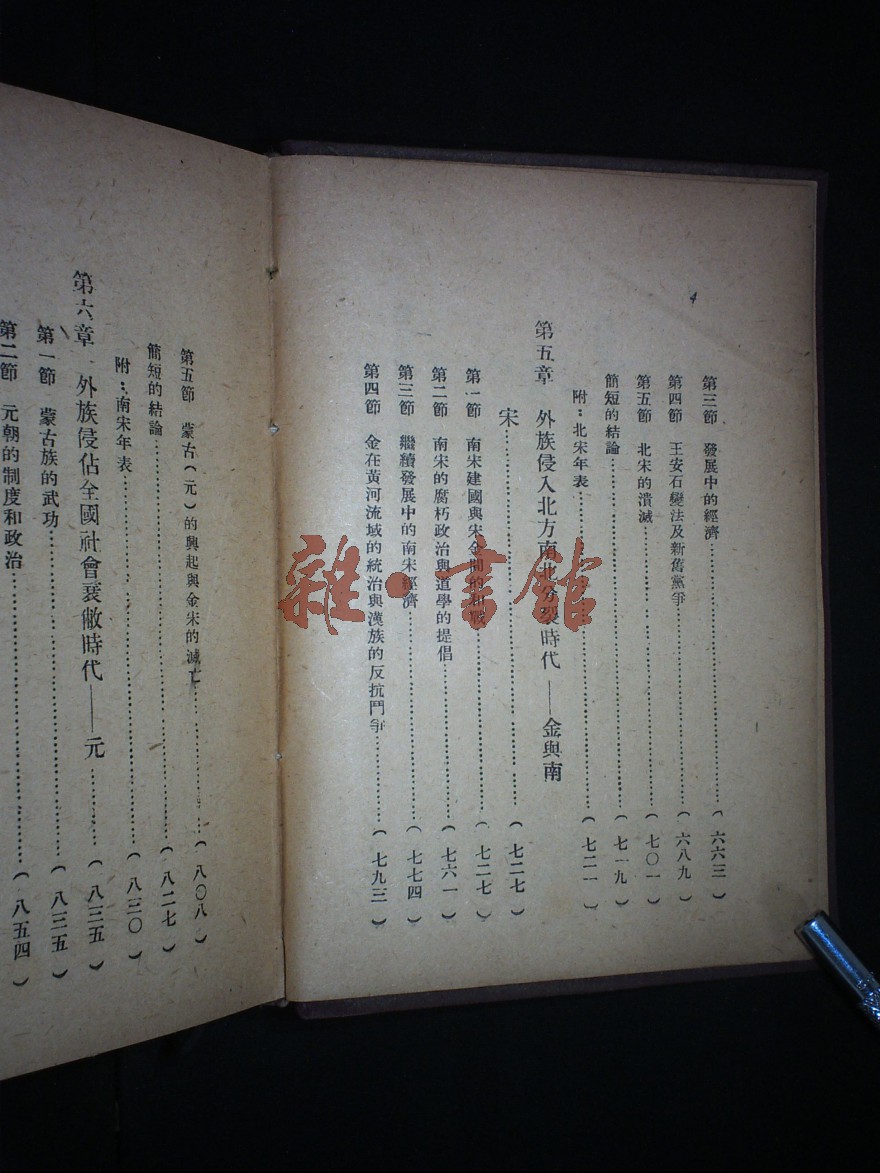 4
第三節 發展中的經濟……(六六三)
第四節 王安石變法及新舊黨爭……(六八九)
第五節 北宋的潰滅……(七〇一)
簡短的結論……(七一九)
附：北宋年表……(七二一)
第五章 外族侵入北方南北分裂時代——金與南
宋……(七二七)
第一節 南宋建國與宋金間的和戰……(七二七)
第二節 南宋的腐朽政治與道學的提倡……(七六一)
第三節 繼續發展中的南宋經濟……(七七四)
第四節 金在黃河流域的統治與漢族的反抗鬥爭……(七九三)
第五節 蒙古(元)的興起與金宋的滅亡……(八〇八)
簡短的結論……(八二七)
附：南宋年表……(八三〇)
第六章 外族侵佔全國社會衰敝時代——元……(八三五)
第一節 蒙古族的武功……(八三五)
第二節 元朝的制度和政治……(八五四)
雜·書館